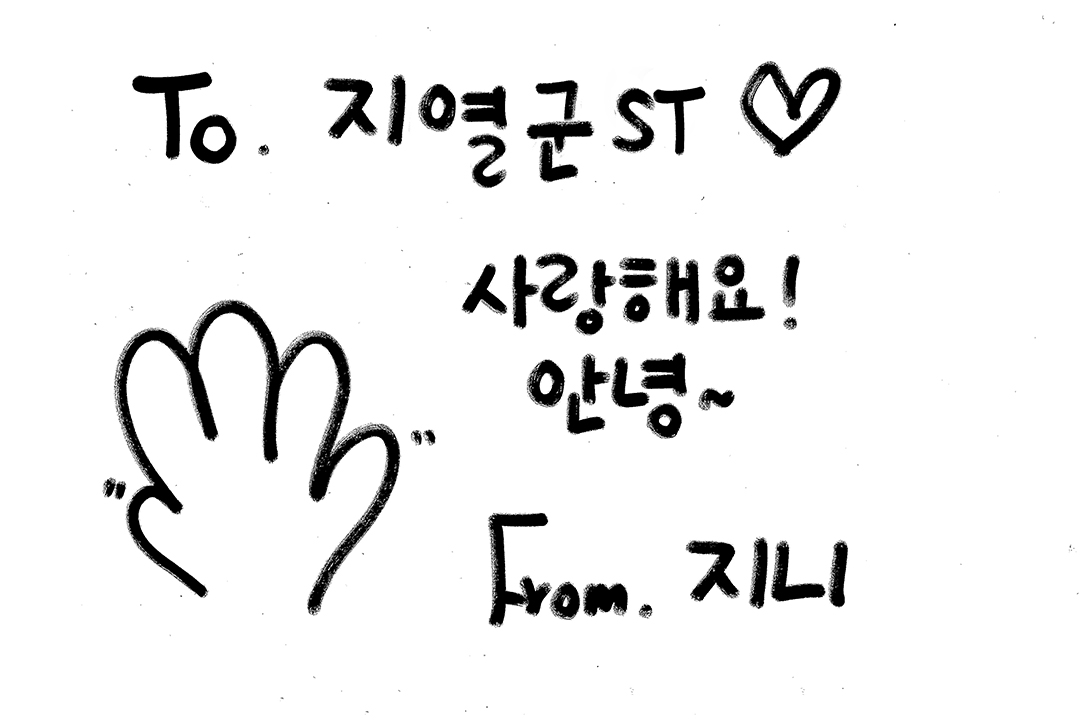 To. 지열군ST ♡
사랑해요!
안녕~
From. 지니